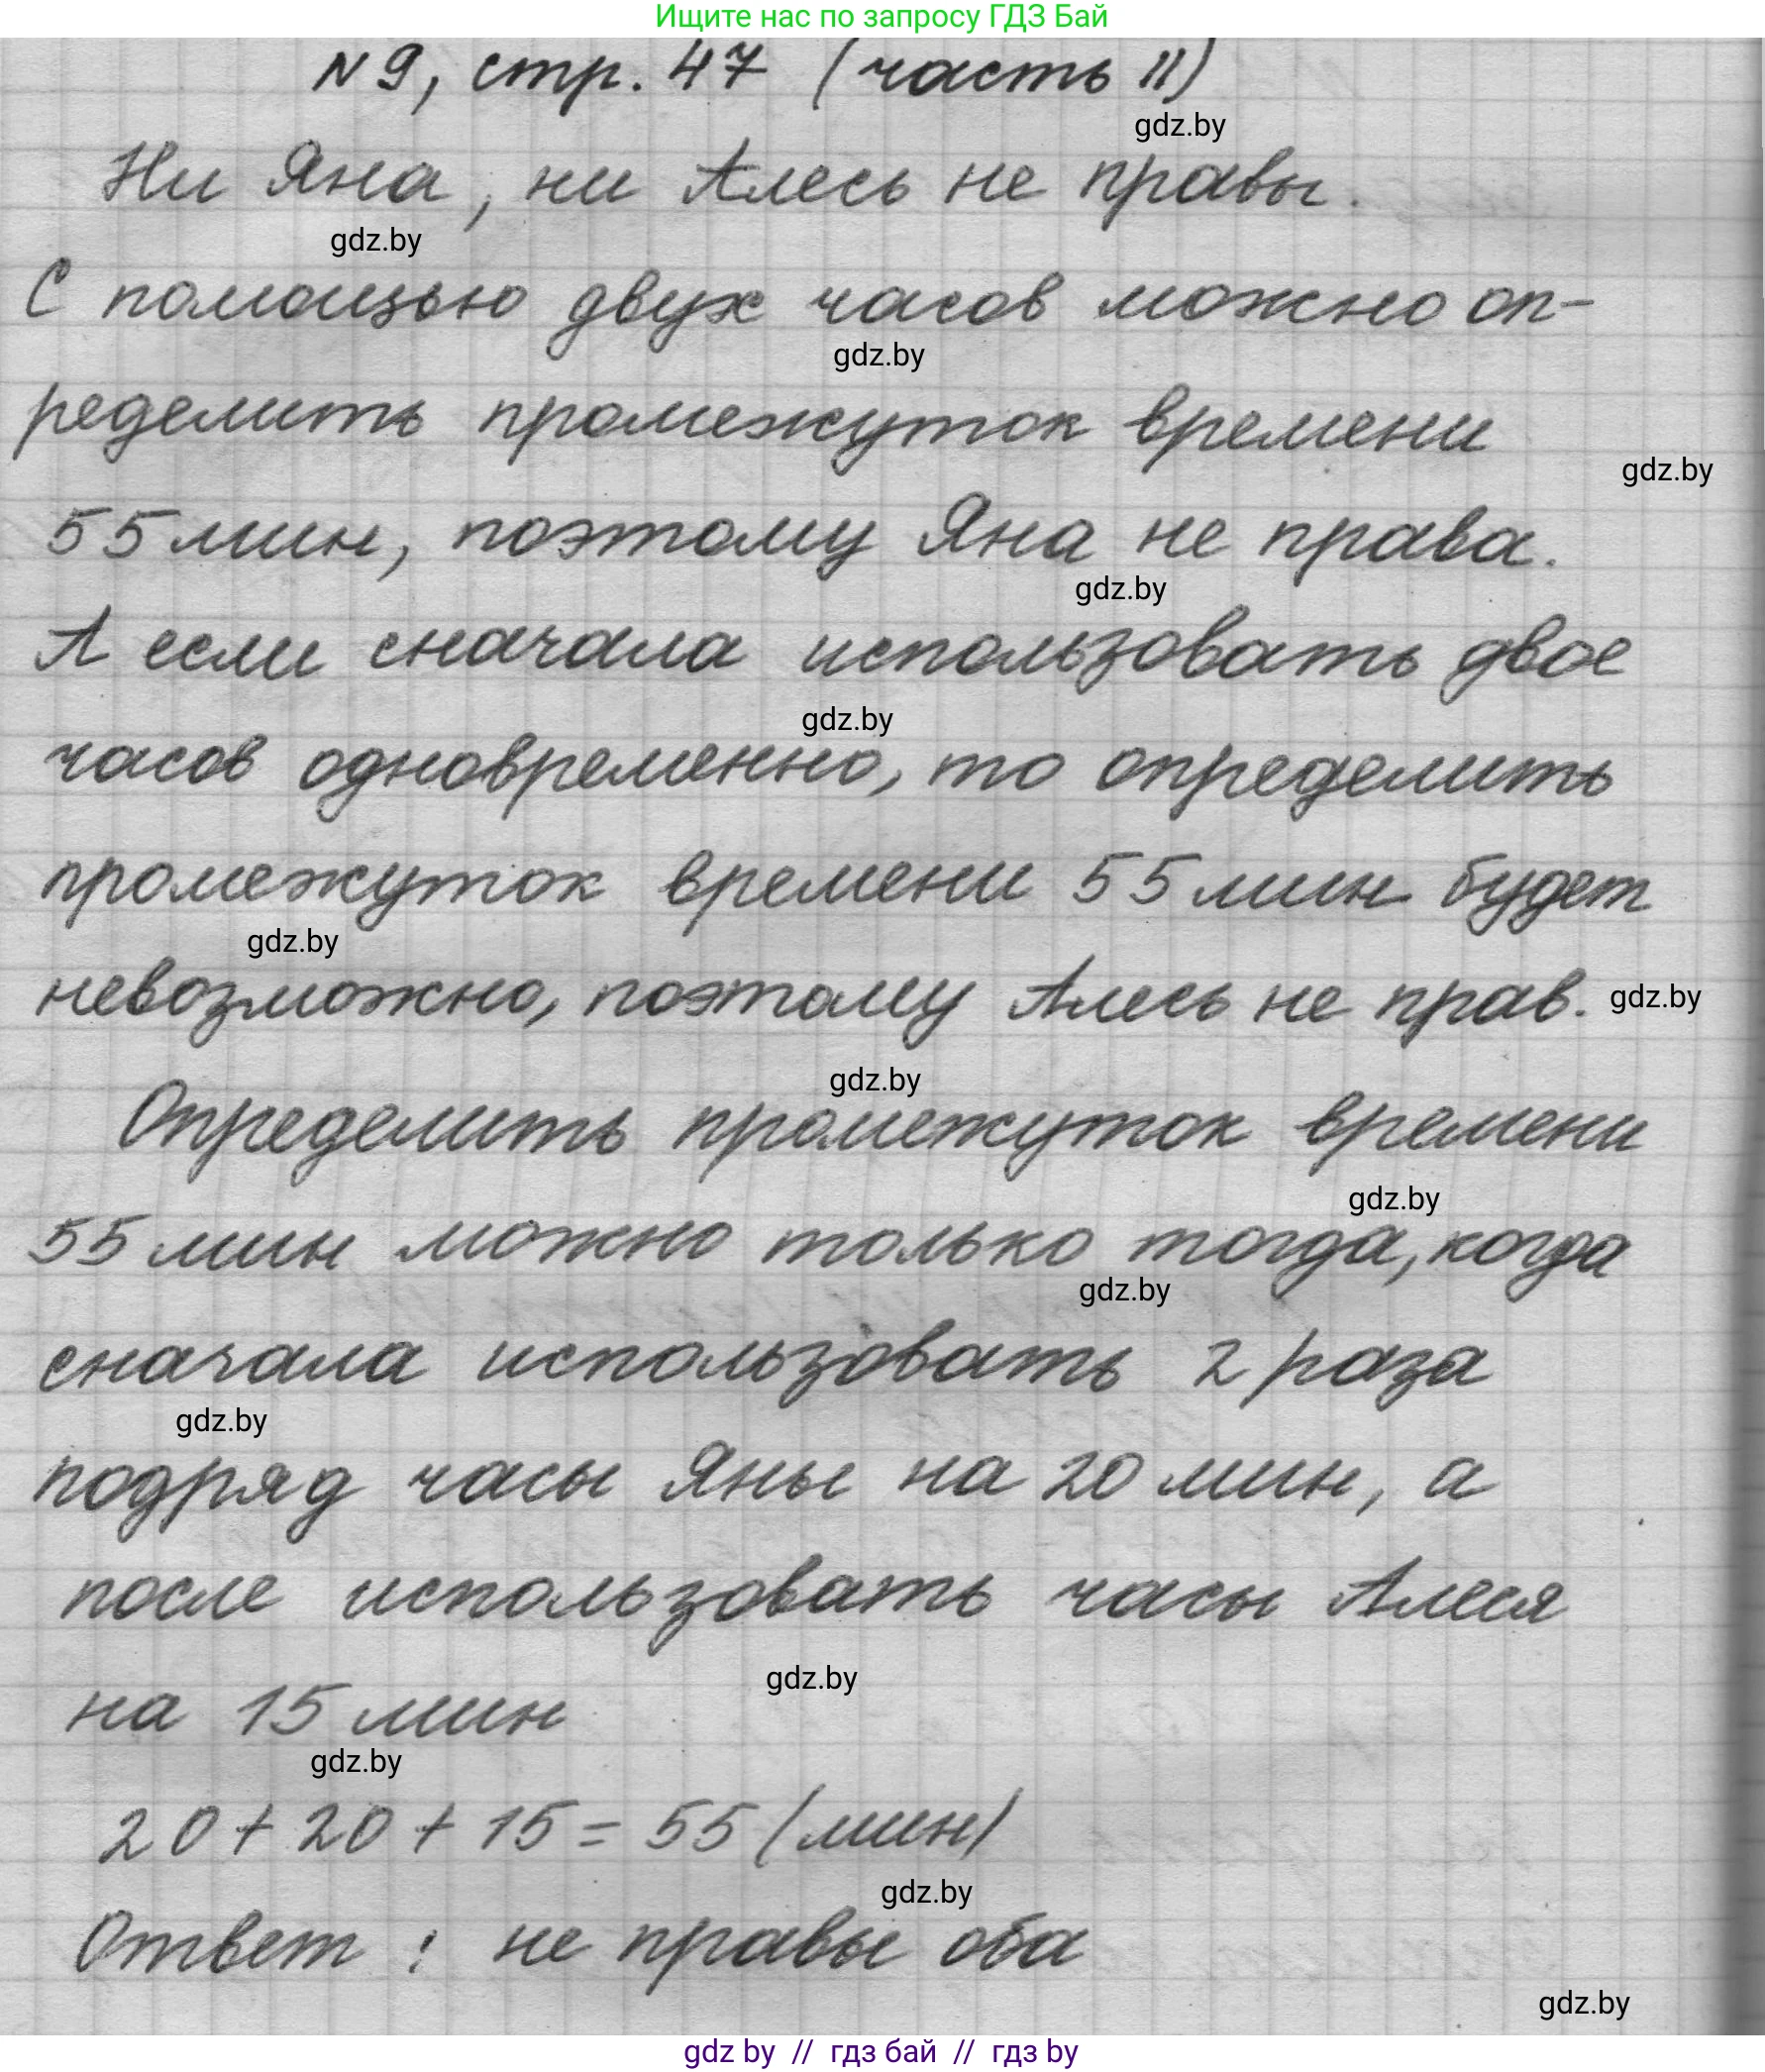 Ищите нас по запросу ГДЗ Бай
N 9, стр. 47 (часть II)
gdz.by
Ни Яна, ни Алесь не правы.
gdz.by
С помощью двух часов можно оп-
gdz.by
ределить промежуток времени
gdz.by
55 мин, поэтому Яна не права.
gdz.by
А если сначала использовать двое
gdz.by
часов одновременно, то определить
промежуток времени 55 мин будет
gdz.by
невозможно, поэтому Алесь не прав. gdz.by
gdz.by
Определить промежуток времени
gdz.by
55 мин можно только тогда, когда
gdz.by
сначала использовать 2 раза
gdz.by
подряд часы Яны на 20 мин, а
после использовать часы Алеся
gdz.by
на 15 мин
gdz.by
20 + 20 + 15 = 55 (мин)
gdz.by
Ответ: не правы оба
gdz.by
gdz by // гдз бай // гдз by